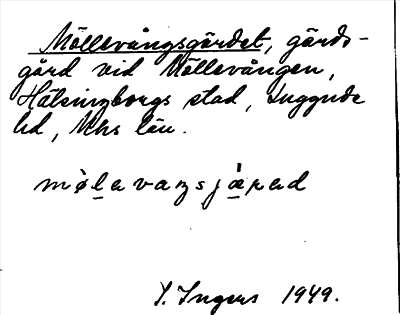 Möllevångsgärdet, gärds-
gård vid Möllevången,
Hälsingborgs stad, Luggude
hd, Mhs län.
mø̱la vaŋsjä̱rad
I. Ingers 1949.